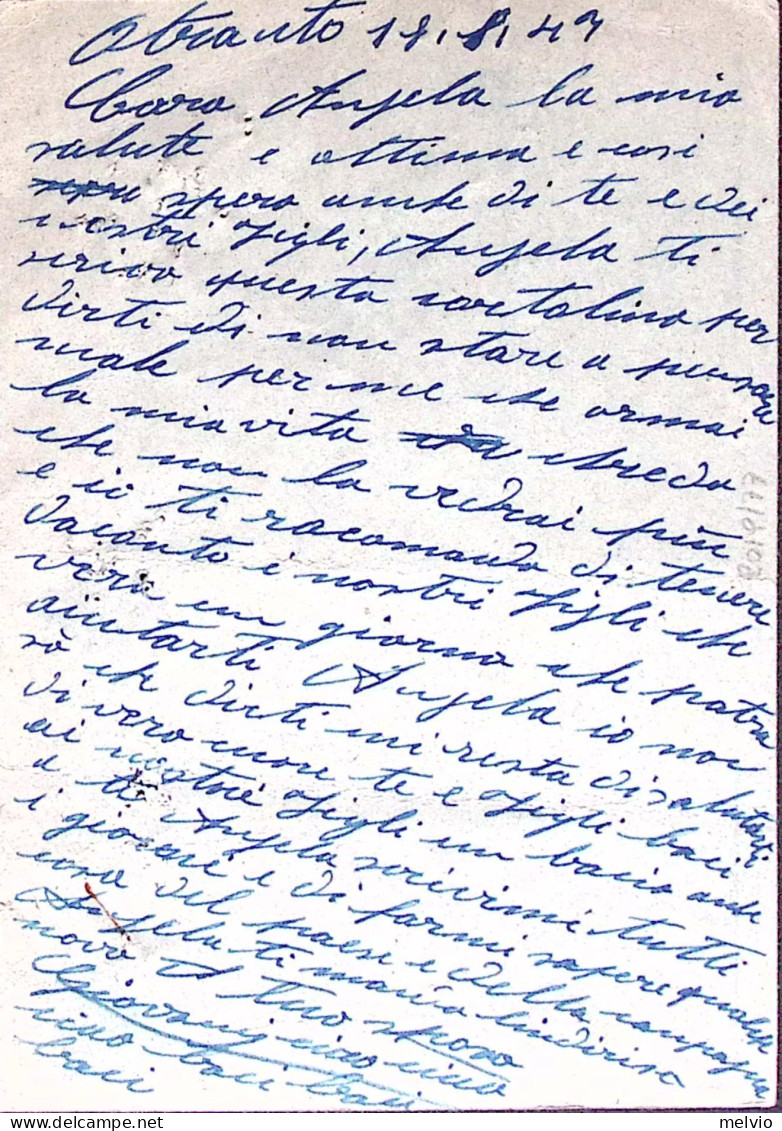 Otranto 18.8.43
Cara Angela la mia
salute e ottima e cosi
spero anche di te e dei
nostri figli, Angela ti
scrivo questa cartolina per
dirti di non stare a pensare
male per me che ormai
la mia vita chreda
che non la vedrai più
e io ti racomando di tenere
dacanto i nostri figli che
vera un giorno che potra
aiutarti Angela io non
sò che dirti mi resta di salutarti
di vero cuore te e figli baci
ai nostri figli un bacio anche
a te Angela scrivimi tutti
i giorni e di farmi sapere qualche
cosa del paese e della campagna
Angela ti manda lindiriso
novo il tuo sposo
Giovani ciao ciao
ciao baci baci
baci
2019/77
melvio